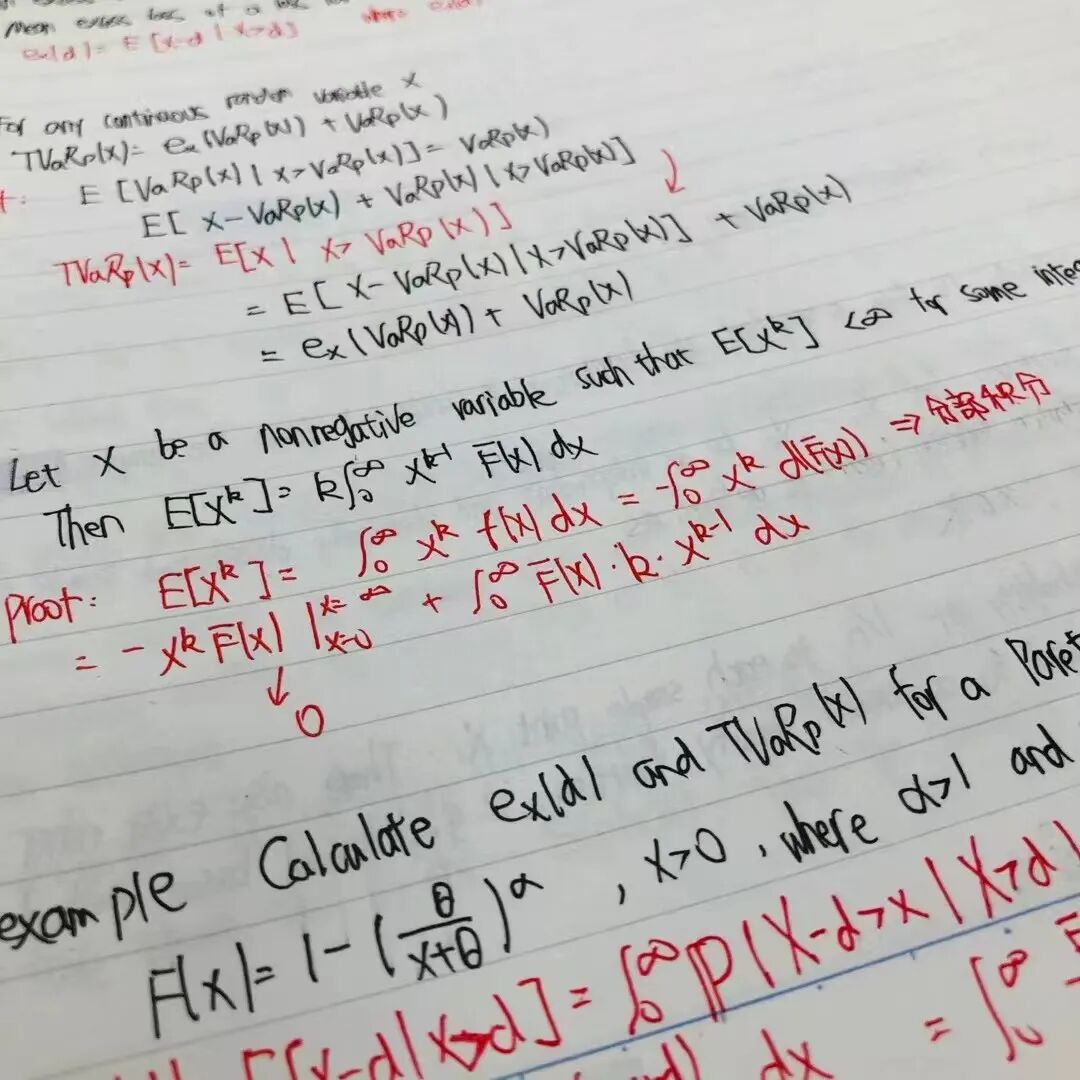 Mean excess loss of a
ex(d) = E [X-d | X>d] where
For any continuous random variable X
TVaRp(X) = ex(VaRp(X)) + VaRp(X)
E [VaRp(X) | X>VaRp(X)] = VaRp(X)
E[ X-VaRp(X) + VaRp(X) | X>VaRp(X)]
TVaRp(X) = E[X | X> VaRp(X)]
= E[ X-VaRp(X) | X>VaRp(X)] + VaRp(X)
= ex(VaRp(X)) + VaRp(X)
Let X be a nonnegative variable such that E[X^k] <∞ for some
Then E[X^k] = k∫₀^∞ x^{k-1} F̄(x) dx
Proof: E[X^k] = ∫₀^∞ x^k f(x) dx = -∫₀^∞ x^k d(F̄(x)) ⇒ 分部积分
= - x^k F̄(x) |_{x=0}^{x=∞} + ∫₀^∞ F̄(x)·k·x^{k-1} dx
↓
0
example Calculate ex(d) and TVaRp(X) for a
F(x) = 1-(θ/(x+θ))^α , x>0 , where α>1 and
E[X-d | X>d] = ∫₀^∞ ℙ(X-d>x | X>d)
dx = ∫₀^∞